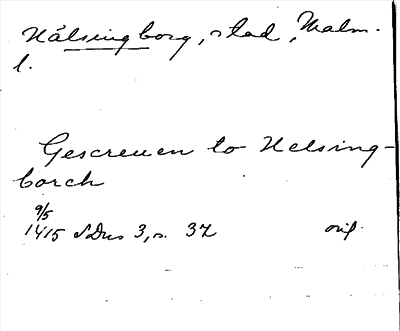 Hälsingborg, stad, Malm.
l.
Gescreuen to Helsing-
borch
9/5
1415 SDns 3, s. 32 orig.